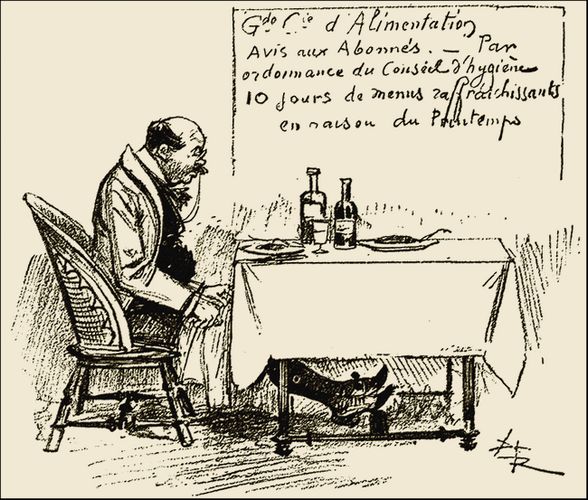 Gdo Cie d'Alimentation
Avis aux Abonnés. — Par
ordonnance du Conseil d'hygiène
10 jours de menus raffraichissants
en raison du Printemps